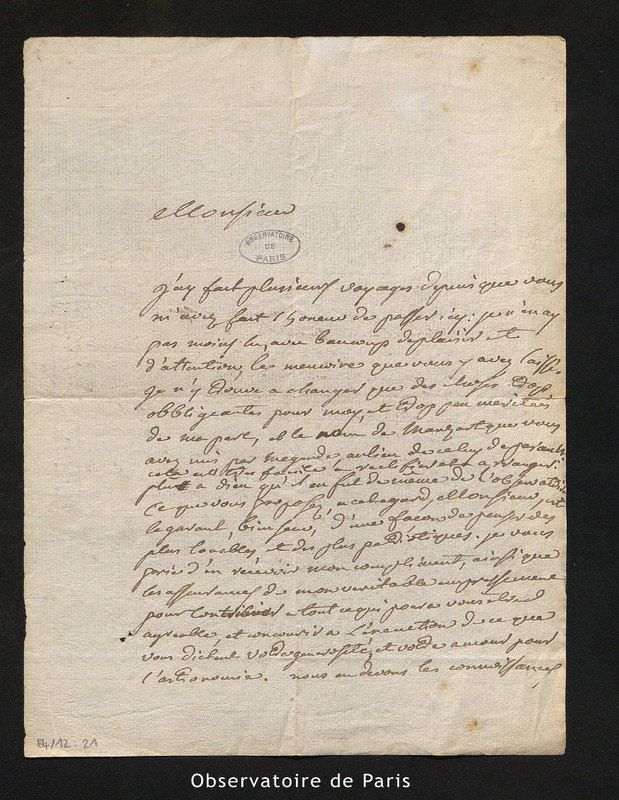 Monsieur
OBSERVATOIRE
DE
PARIS
j'ay fait plusieurs voyages depuis que vous
m'avez fait l'honeur de passer icy: je n'en ay
pas moins lu, avec beaucoup de plaisir et
d'attention, les memoire que vous y avez laissé.
Je n'y trouve a changer que des choses trop
obbligeantes pour moy, et trop peu meritées
de ma part, et le nom de Mansart que vous
avez mis par megarde au lieu de celuy de perault
cela est tres facile a rectifier et a
plut a dieu qu'il en fut de meme de l'observatoire
Ce que vous proposez, a cet egard, Monsieur, est
d'une façon de penser des
plus louables, et des plus patriotiques. je vous
prie d'en recevoir mon compliment, ainsi que
les assurances de mon veritable empressement
pour contribuer a tout ce qui poura vous etre
agreable, et concourir a l'execution de ce que
vous dictent votre generosité, et votre amour pour
l'astronomie. nous en devons les connoissances
E4/12-21
Observatoire de Paris